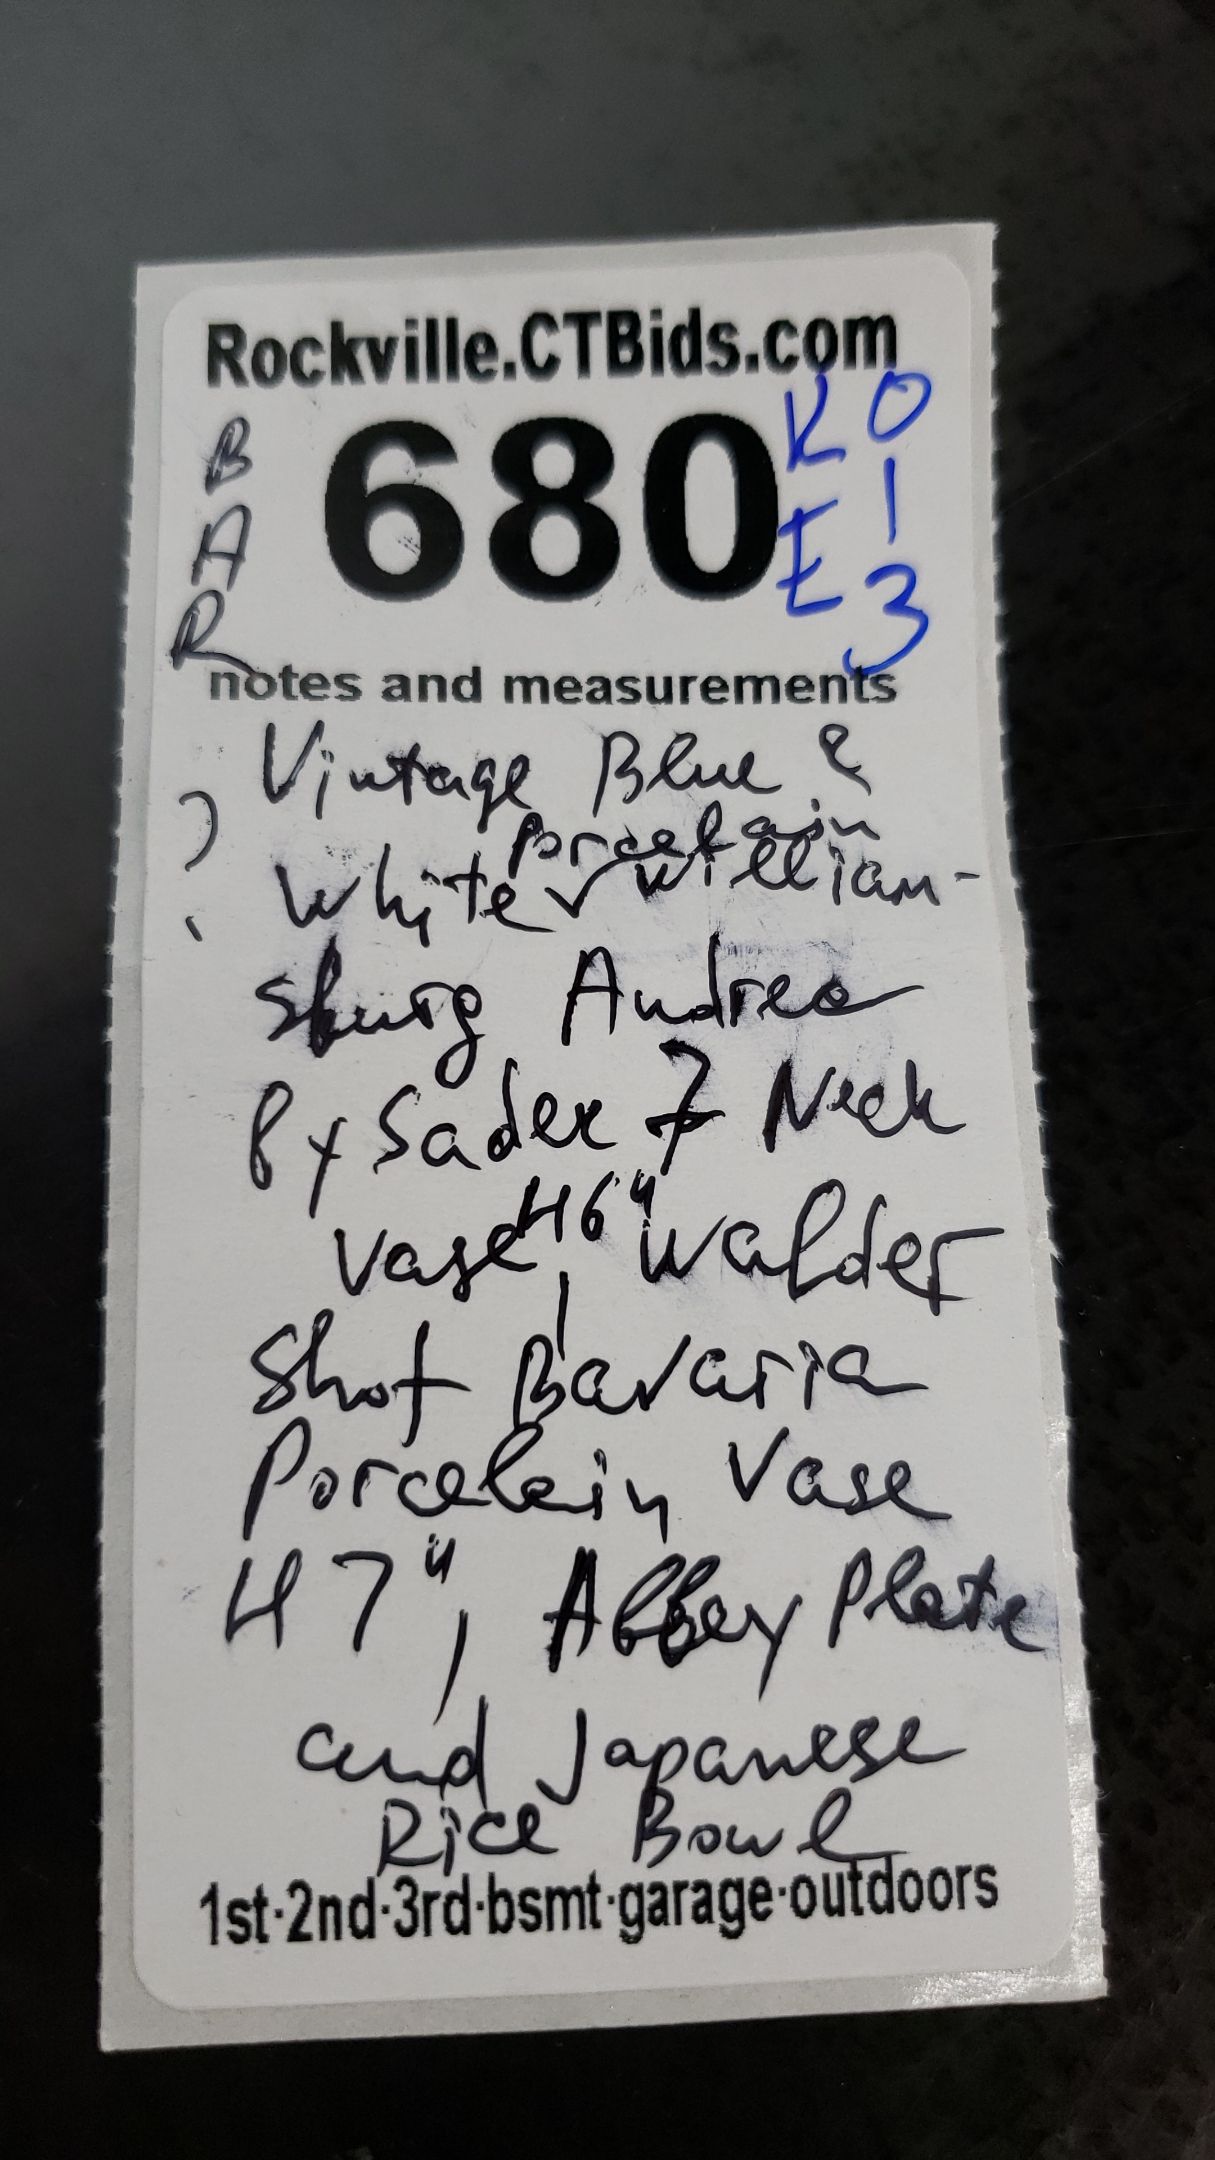 Rockville.CTBids.com
BAR
680
KE
013
notes and measurements
Vintage Blue &
porcelain
White ✓ William-
sburg Andrea
by Sadek 7 Neck
vase H 6", Walder
Shof Bavaria
Porcelain Vase
H 7", Abbey Plate
and Japanese
Rice Bowl
1st·2nd·3rd·bsmt·garage·outdoors